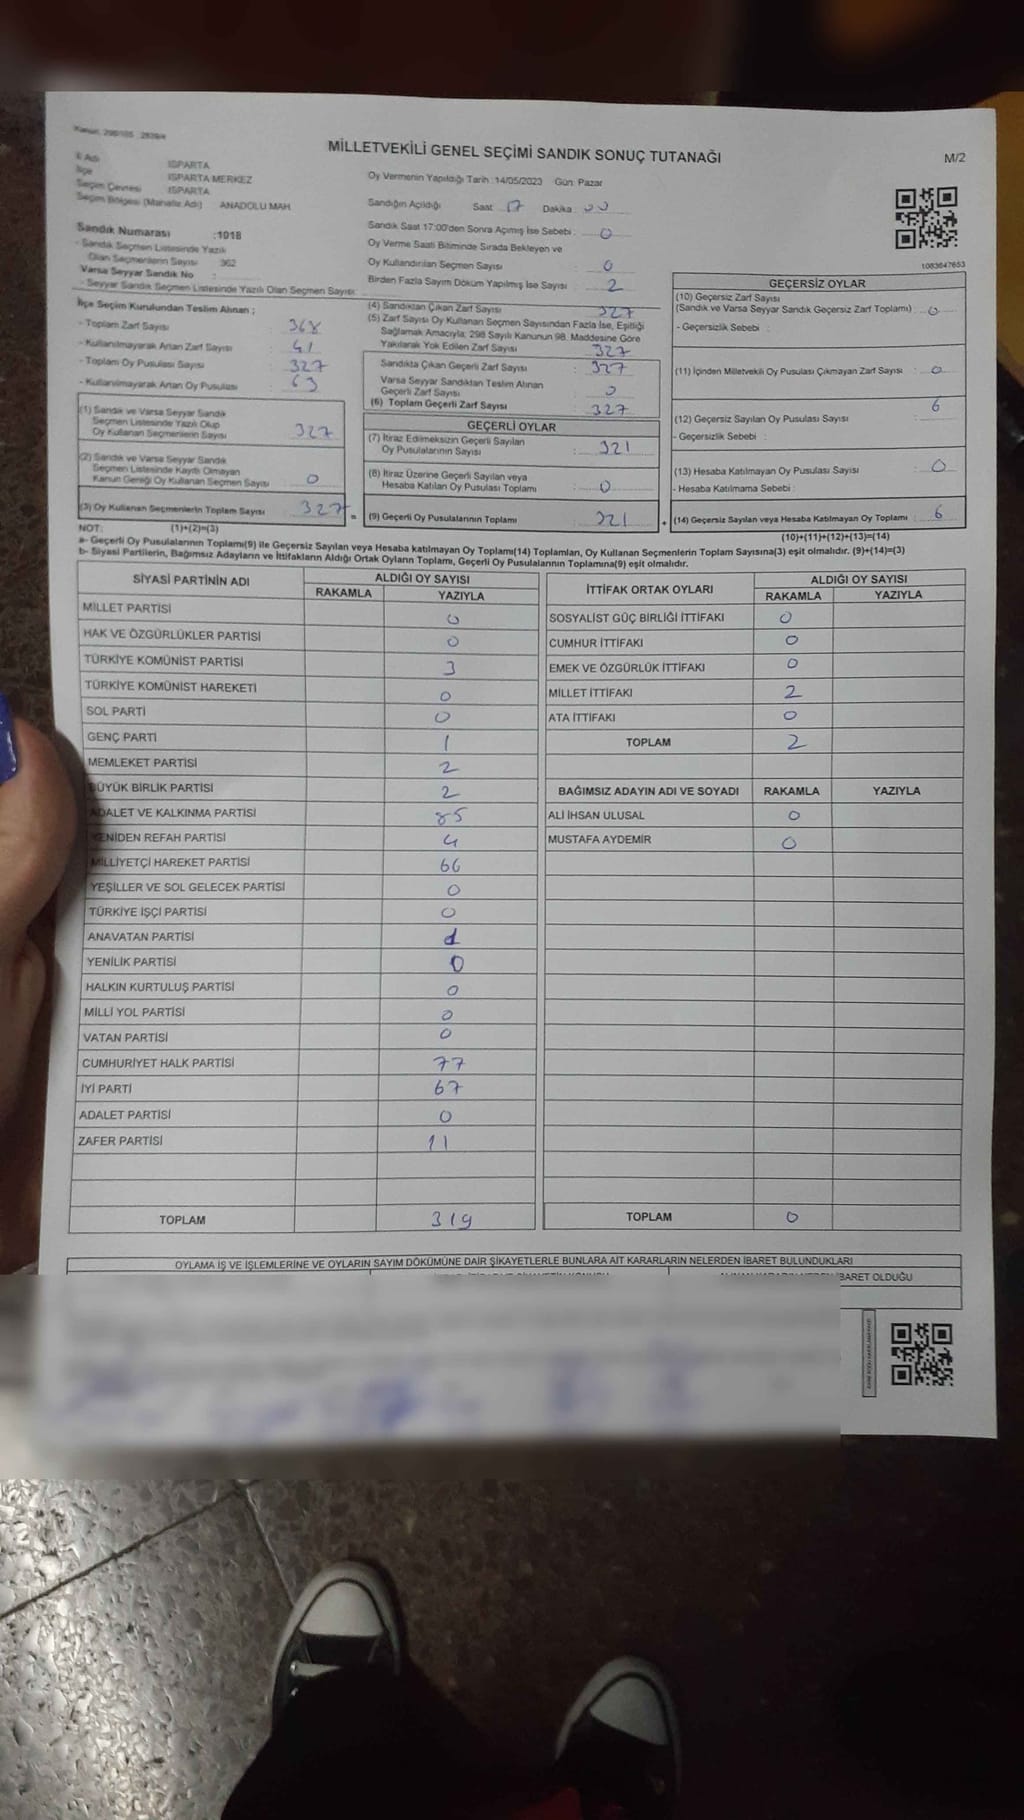 MİLLETVEKİLİ GENEL SEÇİMİ SANDIK SONUÇ TUTANAĞI
M/2
İl Adı ISPARTA
İlçe ISPARTA MERKEZ
Seçim Çevresi ISPARTA
Seçim Bölgesi (Mahalle Adı) ANADOLU MAH.
Oy Vermenin Yapıldığı Tarih :14/05/2023 Gün: Pazar
Sandığın Açıldığı Saat 17 Dakika 00
Sandık Saat 17:00'den Sonra Açımış İse Sebebi : 0
Oy Verme Saati Bitiminde Sırada Bekleyen ve
Oy Kullandırılan Seçmen Sayısı : 0
Birden Fazla Sayım Döküm Yapılmış İse Sayısı : 2
Sandık Numarası :1018
- Sandık Seçmen Listesinde Yazılı
Olan Seçmenlerin Sayısı 362
Varsa Seyyar Sandık No :
- Seyyar Sandık Seçmen Listesinde Yazılı Olan Seçmen Sayısı:
İlçe Seçim Kurulundan Teslim Alınan ;
- Toplam Zarf Sayısı : 368
- Kullanılmayarak Artan Zarf Sayısı : 41
- Toplam Oy Pusulası Sayısı : 327
- Kullanılmayarak Artan Oy Pusulası : 63
(1) Sandık ve Varsa Seyyar Sandık
Seçmen Listesinde Yazılı Olup
Oy Kullanan Seçmenlerin Sayısı : 327
(2) Sandık ve Varsa Seyyar Sandık
Seçmen Listesinde Kayıtlı Olmayan
Kanun Gereği Oy Kullanan Seçmen Sayısı : 0
(3) Oy Kullanan Seçmenlerin Toplam Sayısı : 327 =
(4) Sandıktan Çıkan Zarf Sayısı : 327
(5) Zarf Sayısı Oy Kullanan Seçmen Sayısından Fazla İse, Eşitliği
Sağlamak Amacıyla; 298 Sayılı Kanunun 98. Maddesine Göre
Yakılarak Yok Edilen Zarf Sayısı : 327
Sandıkta Çıkan Geçerli Zarf Sayısı : 327
Varsa Seyyar Sandıktan Teslim Alınan
Geçerli Zarf Sayısı : 0
(6) Toplam Geçerli Zarf Sayısı : 327
GEÇERLİ OYLAR
(7) İtiraz Edilmeksizin Geçerli Sayılan
Oy Pusulalarının Sayısı : 321
(8) İtiraz Üzerine Geçerli Sayılan veya
Hesaba Katılan Oy Pusulası Toplamı : 0
(9) Geçerli Oy Pusulalarının Toplamı : 321 +
1083647653
GEÇERSİZ OYLAR
(10) Geçersiz Zarf Sayısı
(Sandık ve Varsa Seyyar Sandık Geçersiz Zarf Toplamı) : 0
- Geçersizlik Sebebi :
(11) İçinden Milletvekili Oy Pusulası Çıkmayan Zarf Sayısı : 0
(12) Geçersiz Sayılan Oy Pusulası Sayısı : 6
- Geçersizlik Sebebi :
(13) Hesaba Katılmayan Oy Pusulası Sayısı : 0
- Hesaba Katılmama Sebebi :
(14) Geçersiz Sayılan veya Hesaba Katılmayan Oy Toplamı : 6
NOT: (1)+(2)=(3)
(10)+(11)+(12)+(13)=(14)
a- Geçerli Oy Pusulalarının Toplamı(9) ile Geçersiz Sayılan veya Hesaba katılmayan Oy Toplamı(14) Toplamları, Oy Kullanan Seçmenlerin Toplam Sayısına(3) eşit olmalıdır. (9)+(14)=(3)
b- Siyasi Partilerin, Bağımsız Adayların ve İttifakların Aldığı Ortak Oyların Toplamı, Geçerli Oy Pusulalarının Toplamına(9) eşit olmalıdır.
SİYASİ PARTİNİN ADI ALDIĞI OY SAYISI
RAKAMLA YAZIYLA
MİLLET PARTİSİ 0
HAK VE ÖZGÜRLÜKLER PARTİSİ 0
TÜRKİYE KOMÜNİST PARTİSİ 3
TÜRKİYE KOMÜNİST HAREKETİ 0
SOL PARTİ 0
GENÇ PARTİ 1
MEMLEKET PARTİSİ 2
BÜYÜK BİRLİK PARTİSİ 2
ADALET VE KALKINMA PARTİSİ 85
YENİDEN REFAH PARTİSİ 4
MİLLİYETÇİ HAREKET PARTİSİ 66
YEŞİLLER VE SOL GELECEK PARTİSİ 0
TÜRKİYE İŞÇİ PARTİSİ 0
ANAVATAN PARTİSİ
YENİLİK PARTİSİ 0
HALKIN KURTULUŞ PARTİSİ 0
MİLLİ YOL PARTİSİ 0
VATAN PARTİSİ 0
CUMHURİYET HALK PARTİSİ 77
İYİ PARTİ 67
ADALET PARTİSİ 0
ZAFER PARTİSİ 11
TOPLAM 319
İTTİFAK ORTAK OYLARI ALDIĞI OY SAYISI
RAKAMLA YAZIYLA
SOSYALİST GÜÇ BİRLİĞİ İTTİFAKI 0
CUMHUR İTTİFAKI 0
EMEK VE ÖZGÜRLÜK İTTİFAKI 0
MİLLET İTTİFAKI 2
ATA İTTİFAKI 0
TOPLAM 2
BAĞIMSIZ ADAYIN ADI VE SOYADI RAKAMLA YAZIYLA
ALİ İHSAN ULUSAL 0
MUSTAFA AYDEMİR 0
TOPLAM 0
OYLAMA İŞ VE İŞLEMLERİNE VE OYLARIN SAYIM DÖKÜMÜNE DAİR ŞİKAYETLERLE BUNLARA AİT KARARLARIN NELERDEN İBARET BULUNDUKLARI
İBARET OLDUĞU